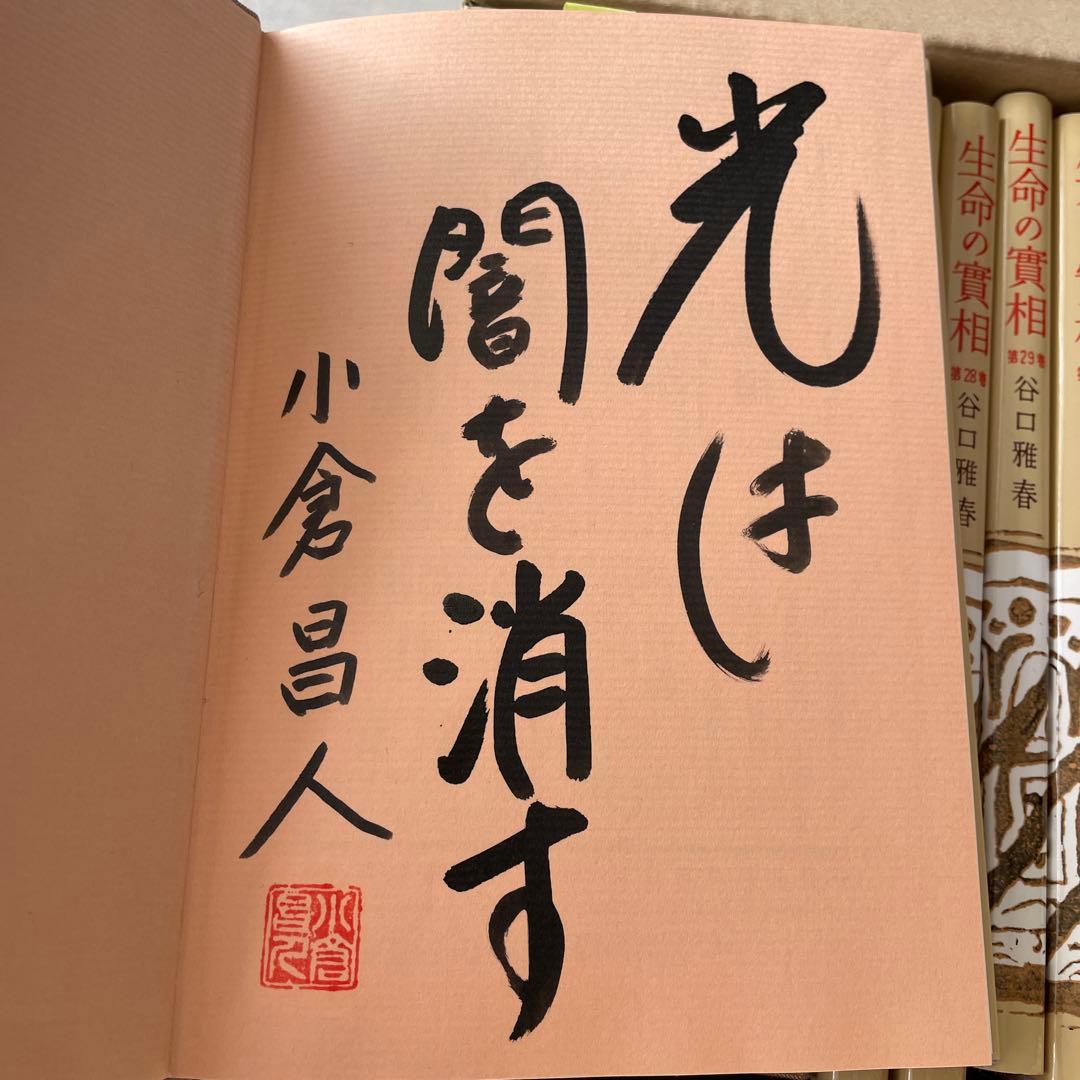 光は
闇を消す
小倉昌人
小倉昌人
生命の實相 第29巻 谷口雅春
生命の實相 第28巻 谷口雅春